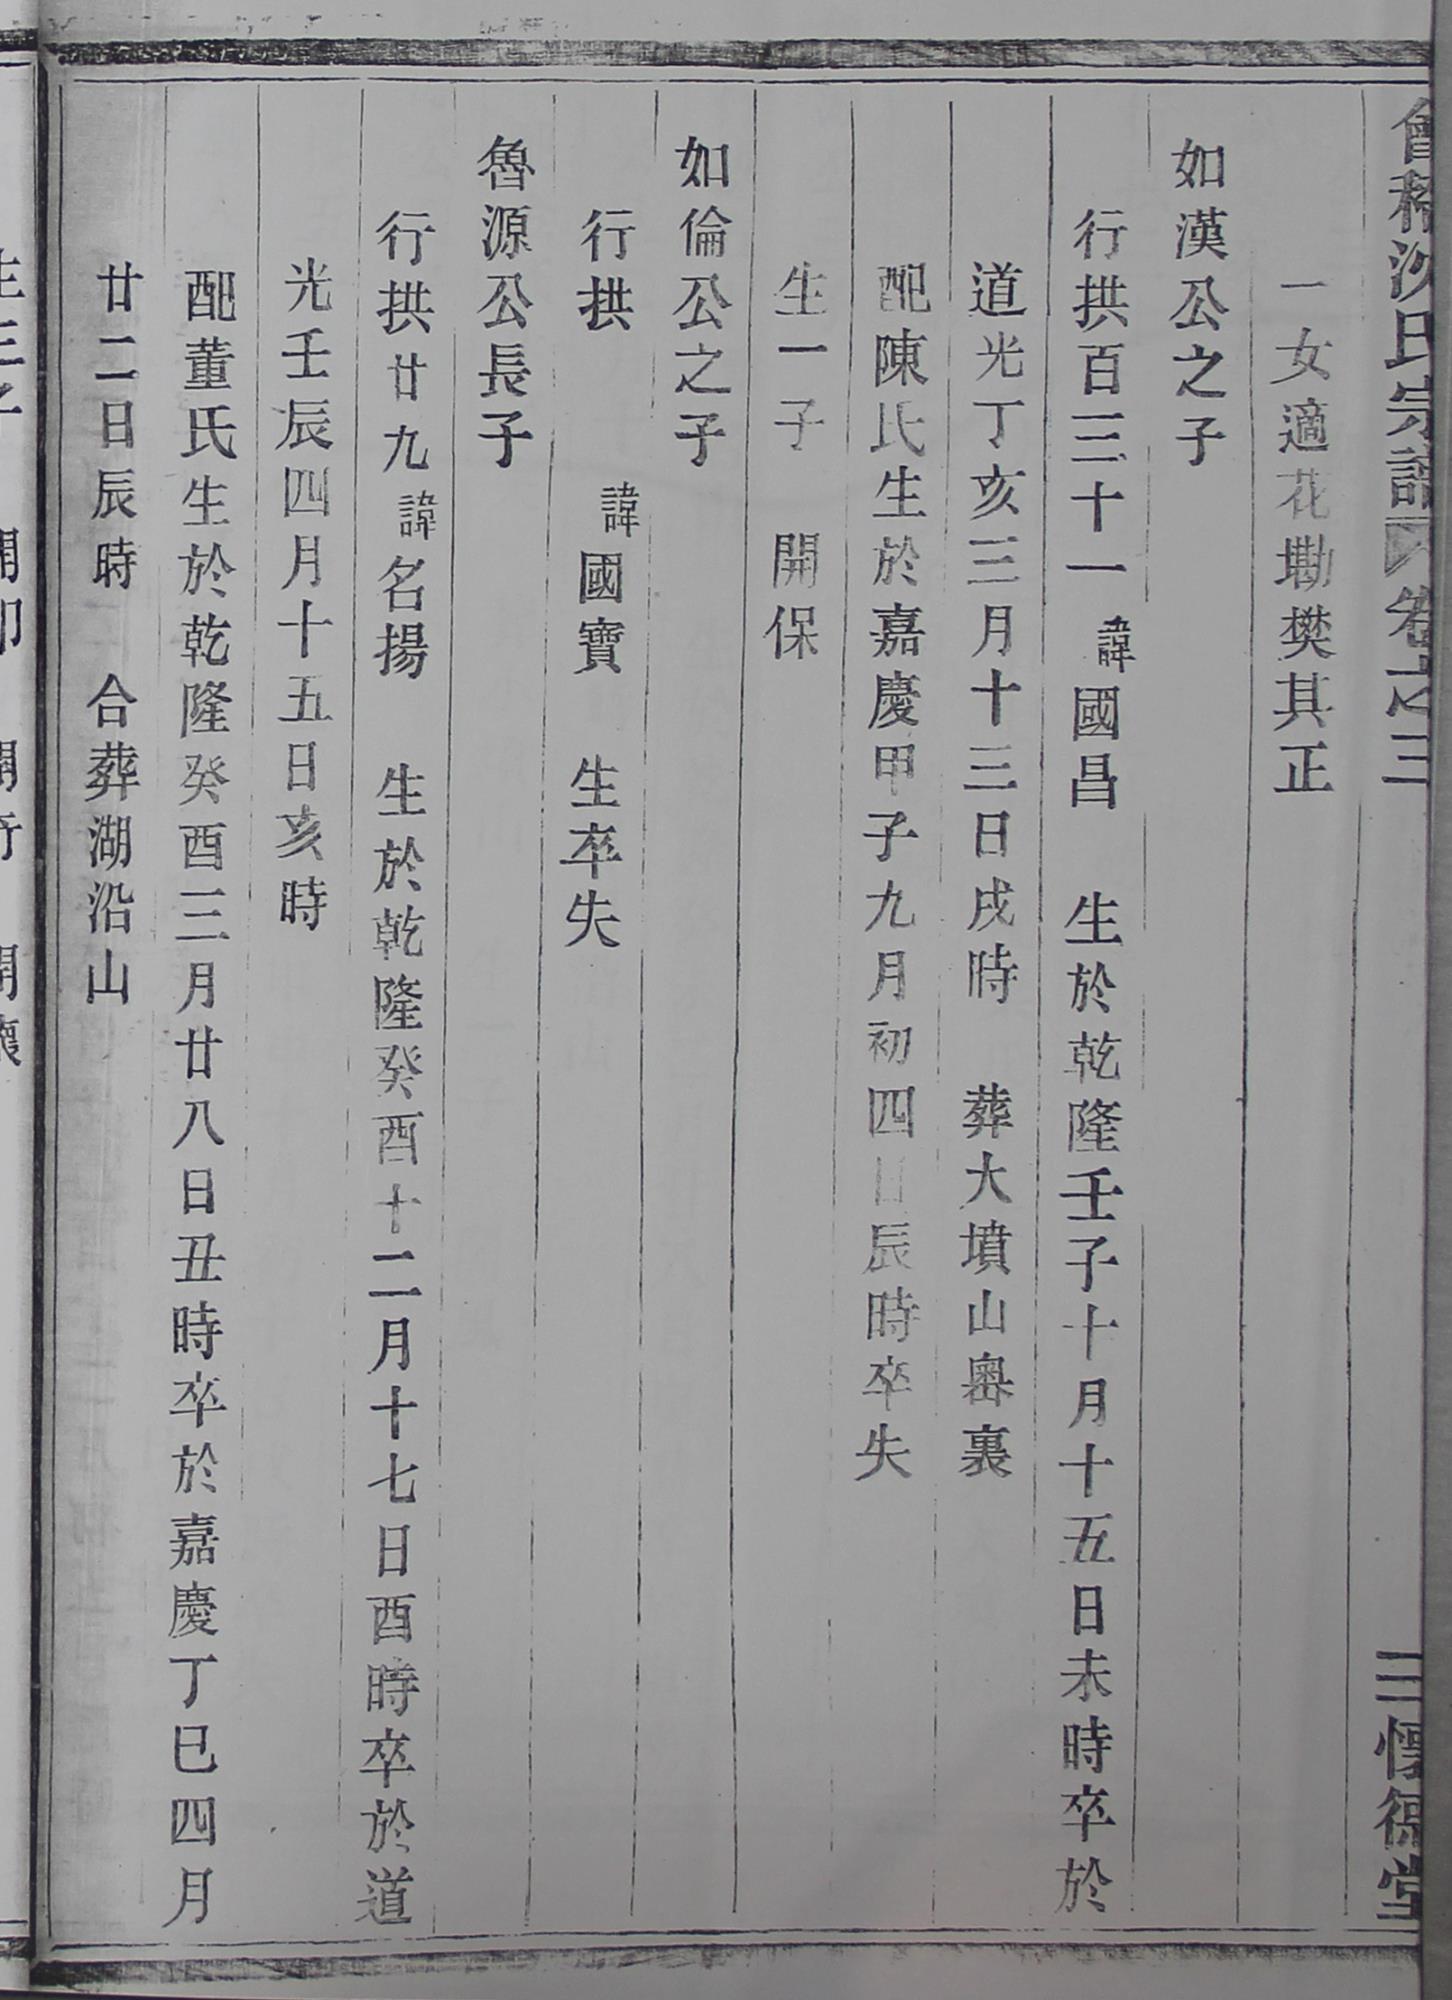 會稽沈氏宗譜 卷之三 三 懷德堂
一女適花墈樊其正
如漢公之子
行拱百三十一 諱國昌 生於乾隆壬子十月十五日未時卒於
道光丁亥三月十三日戌時 葬大墳山嶴裏
配陳氏生於嘉慶甲子九月初四日辰時卒失
生一子 開保
如倫公之子
行拱 諱國寶 生卒失
魯源公長子
行拱廿九 諱名揚 生於乾隆癸酉十二月十七日酉時卒於道
光壬辰四月十五日亥時
配董氏生於乾隆癸酉三月廿八日丑時卒於嘉慶丁巳四月
廿二日辰時 合葬湖沿山